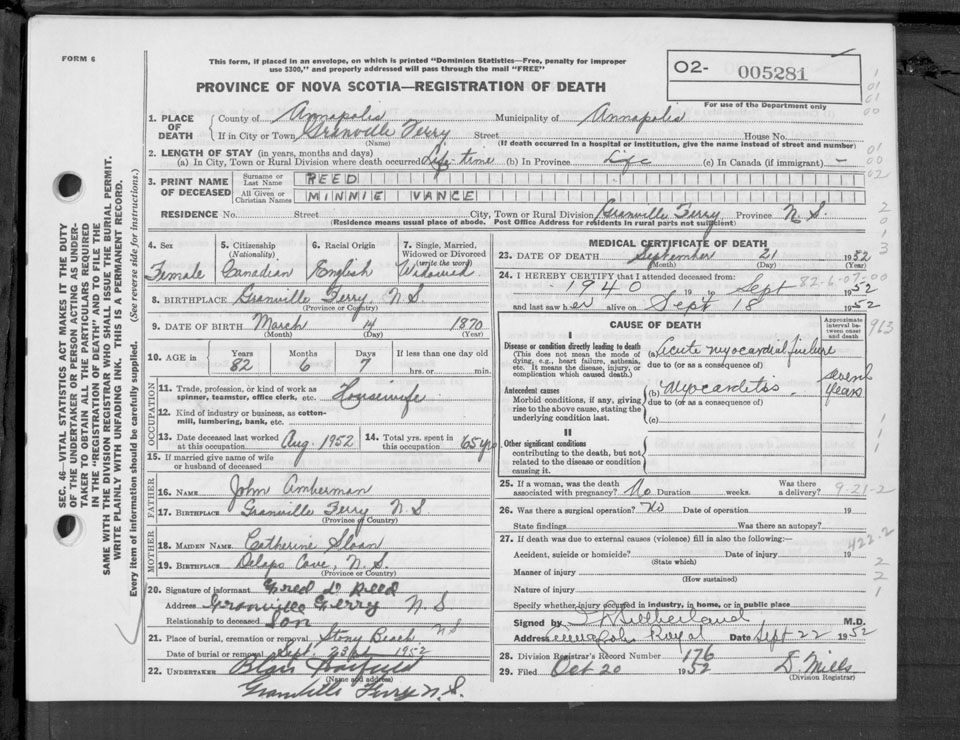 FORM 6
This form, if placed in an envelope, on which is printed "Dominion Statistics—Free, penalty for improper
use $300," and properly addressed will pass through the mail "FREE"
PROVINCE OF NOVA SCOTIA—REGISTRATION OF DEATH
O2- 005281
For use of the Department only
1. PLACE OF DEATH County of Annapolis Municipality of Annapolis
If in City or Town Granville Ferry Street House No.
(Name) (If death occurred in a hospital or institution, give the name instead of street and number)
2. LENGTH OF STAY (in years, months and days)
(a) In City, Town or Rural Division where death occurred Life-time (b) In Province Life (c) In Canada (if immigrant) —
3. PRINT NAME OF DECEASED Surname or Last Name REED
All Given or Christian Names MINNIE VANCE
RESIDENCE No. Street City, Town or Rural Division Granville Ferry Province N.S.
(Residence means usual place of abode. Post Office Address for residents in rural parts not sufficient)
4. Sex 5. Citizenship (Nationality) 6. Racial Origin 7. Single, Married, Widowed or Divorced (write the word)
Female Canadian English Widowed
8. BIRTHPLACE Granville Ferry, N.S.
(Province or Country)
9. DATE OF BIRTH March 14 1870
(Month) (Day) (Year)
10. AGE in Years Months Days If less than one day old
82 6 7 hrs. or min.
OCCUPATION
11. Trade, profession, or kind of work as spinner, teamster, office clerk, etc. Housewife
12. Kind of industry or business, as cotton-mill, lumbering, bank, etc.
13. Date deceased last worked at this occupation Aug. 1952 14. Total yrs. spent in this occupation 65 yrs
15. If married give name of wife or husband of deceased
FATHER
16. NAME John Amberman
17. BIRTHPLACE Granville Ferry N.S
(Province or Country)
MOTHER
18. MAIDEN NAME Catherine Sloan
19. BIRTHPLACE Delaps Cove, N.S.
(Province or Country)
20. Signature of informant Reed
Address Granville Ferry N.S
Relationship to deceased Son
21. Place of burial, cremation or removal Stony Beach NS
Date of burial or removal Sept. 23rd 1952
22. UNDERTAKER Blair
(Name and address)
Granville Ferry N.S.
MEDICAL CERTIFICATE OF DEATH
23. DATE OF DEATH September 21 1952
(Month) (Day) (Year)
24. I HEREBY CERTIFY that I attended deceased from:
1940 19 to Sept 1952
82-6-07-00
and last saw her alive on Sept 18 1952
CAUSE OF DEATH
Approximate interval between onset and death
963
I
Disease or condition directly leading to death (a) Acute myocardial failure
(This does not mean the mode of dying, e.g., heart failure, asthenia, etc. It means the disease, injury, or complication which caused death.)
due to (or as a consequence of)
Antecedent causes (b) Myocarditis several years
Morbid conditions, if any, giving rise to the above cause, stating the underlying condition last.
due to (or as a consequence of)
(c)
II
Other significant conditions
contributing to the death, but not related to the disease or condition causing it.
25. If a woman, was the death associated with pregnancy? No Duration weeks. Was there a delivery?
9-21-2
26. Was there a surgical operation? No Date of operation 19
State findings Was there an autopsy?
27. If death was due to external causes (violence) fill in also the following:—
422-2
Accident, suicide or homicide? Date of injury 19
(State which)
Manner of injury
(How sustained)
Nature of injury
Specify whether injury occurred in industry, in home, or in public place
Signed by M.D.
Address Annapolis Royal Date Sept 22 1952
28. Division Registrar's Record Number 176
29. Filed Oct 20 1952 D. Mills
(Division Registrar)
SEC. 46—VITAL STATISTICS ACT MAKES IT THE DUTY
OF THE UNDERTAKER OR PERSON ACTING AS UNDER-
TAKER TO OBTAIN ALL THE PARTICULARS REQUIRED
IN THE "REGISTRATION OF DEATH" AND TO FILE THE
SAME WITH THE DIVISION REGISTRAR WHO SHALL ISSUE THE BURIAL PERMIT.
WRITE PLAINLY WITH UNFADING INK. THIS IS A PERMANENT RECORD.
Every item of information should be carefully supplied. (See reverse side for instructions.)